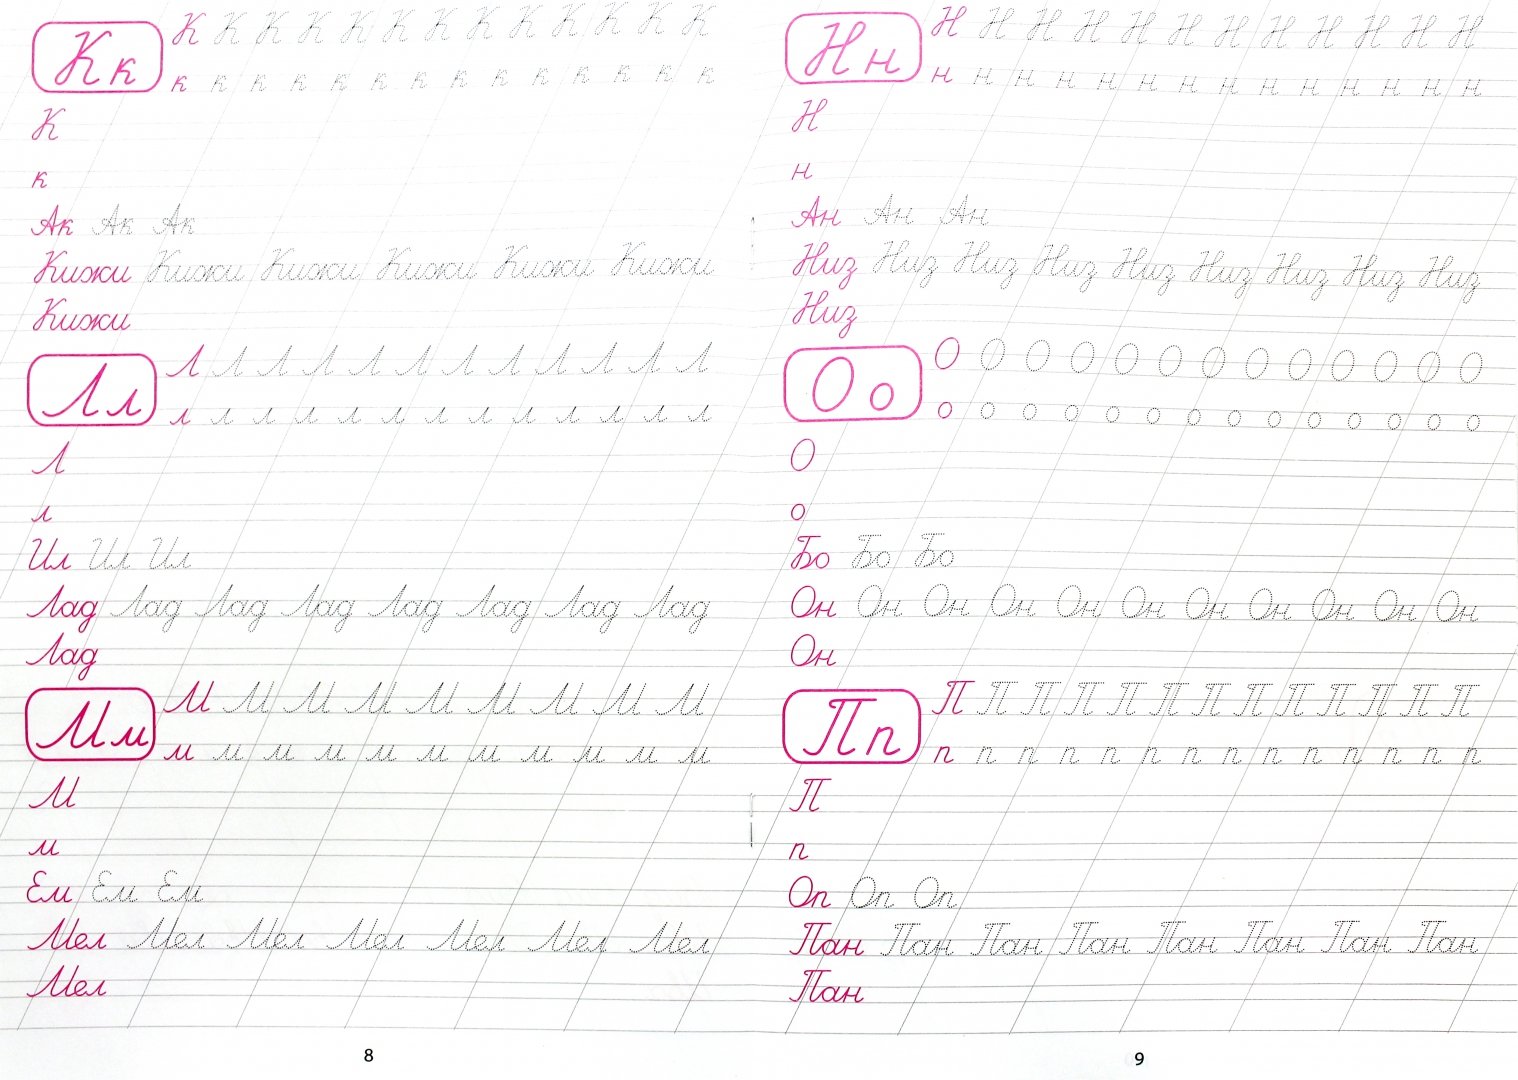 Кк К К К К К К К К К К К К К
к к к к к к к к к к к к к к
К
к
Ак Ак Ак
Кижи Кижи Кижи Кижи Кижи Кижи
Кижи
Лл Л Л Л Л Л Л Л Л Л Л Л Л
л л л л л л л л л л л л л
Л
л
Ил Ил Ил
Лад Лад Лад Лад Лад Лад Лад Лад
Лад
Мм М М М М М М М М М
м м м м м м м м м м м
М
м
Ем Ем Ем
Мел Мел Мел Мел Мел Мел Мел
Мел
8
Нн Н Н Н Н Н Н Н Н Н Н Н Н
н н н н н н н н н н н н н н
Н
н
Ан Ан Ан
Низ Низ Низ Низ Низ Низ Низ Низ Низ
Низ
Оо О О О О О О О О О О О О О
о о о о о о о о о о о о о о
О
о
Бо Бо Бо
Он Он Он Он Он Он Он Он Он Он Он
Он
Пп П П П П П П П П П П П П П
п п п п п п п п п п п п п п
П
п
Оп Оп Оп
Пан Пан Пан Пан Пан Пан Пан Пан
Пан
9